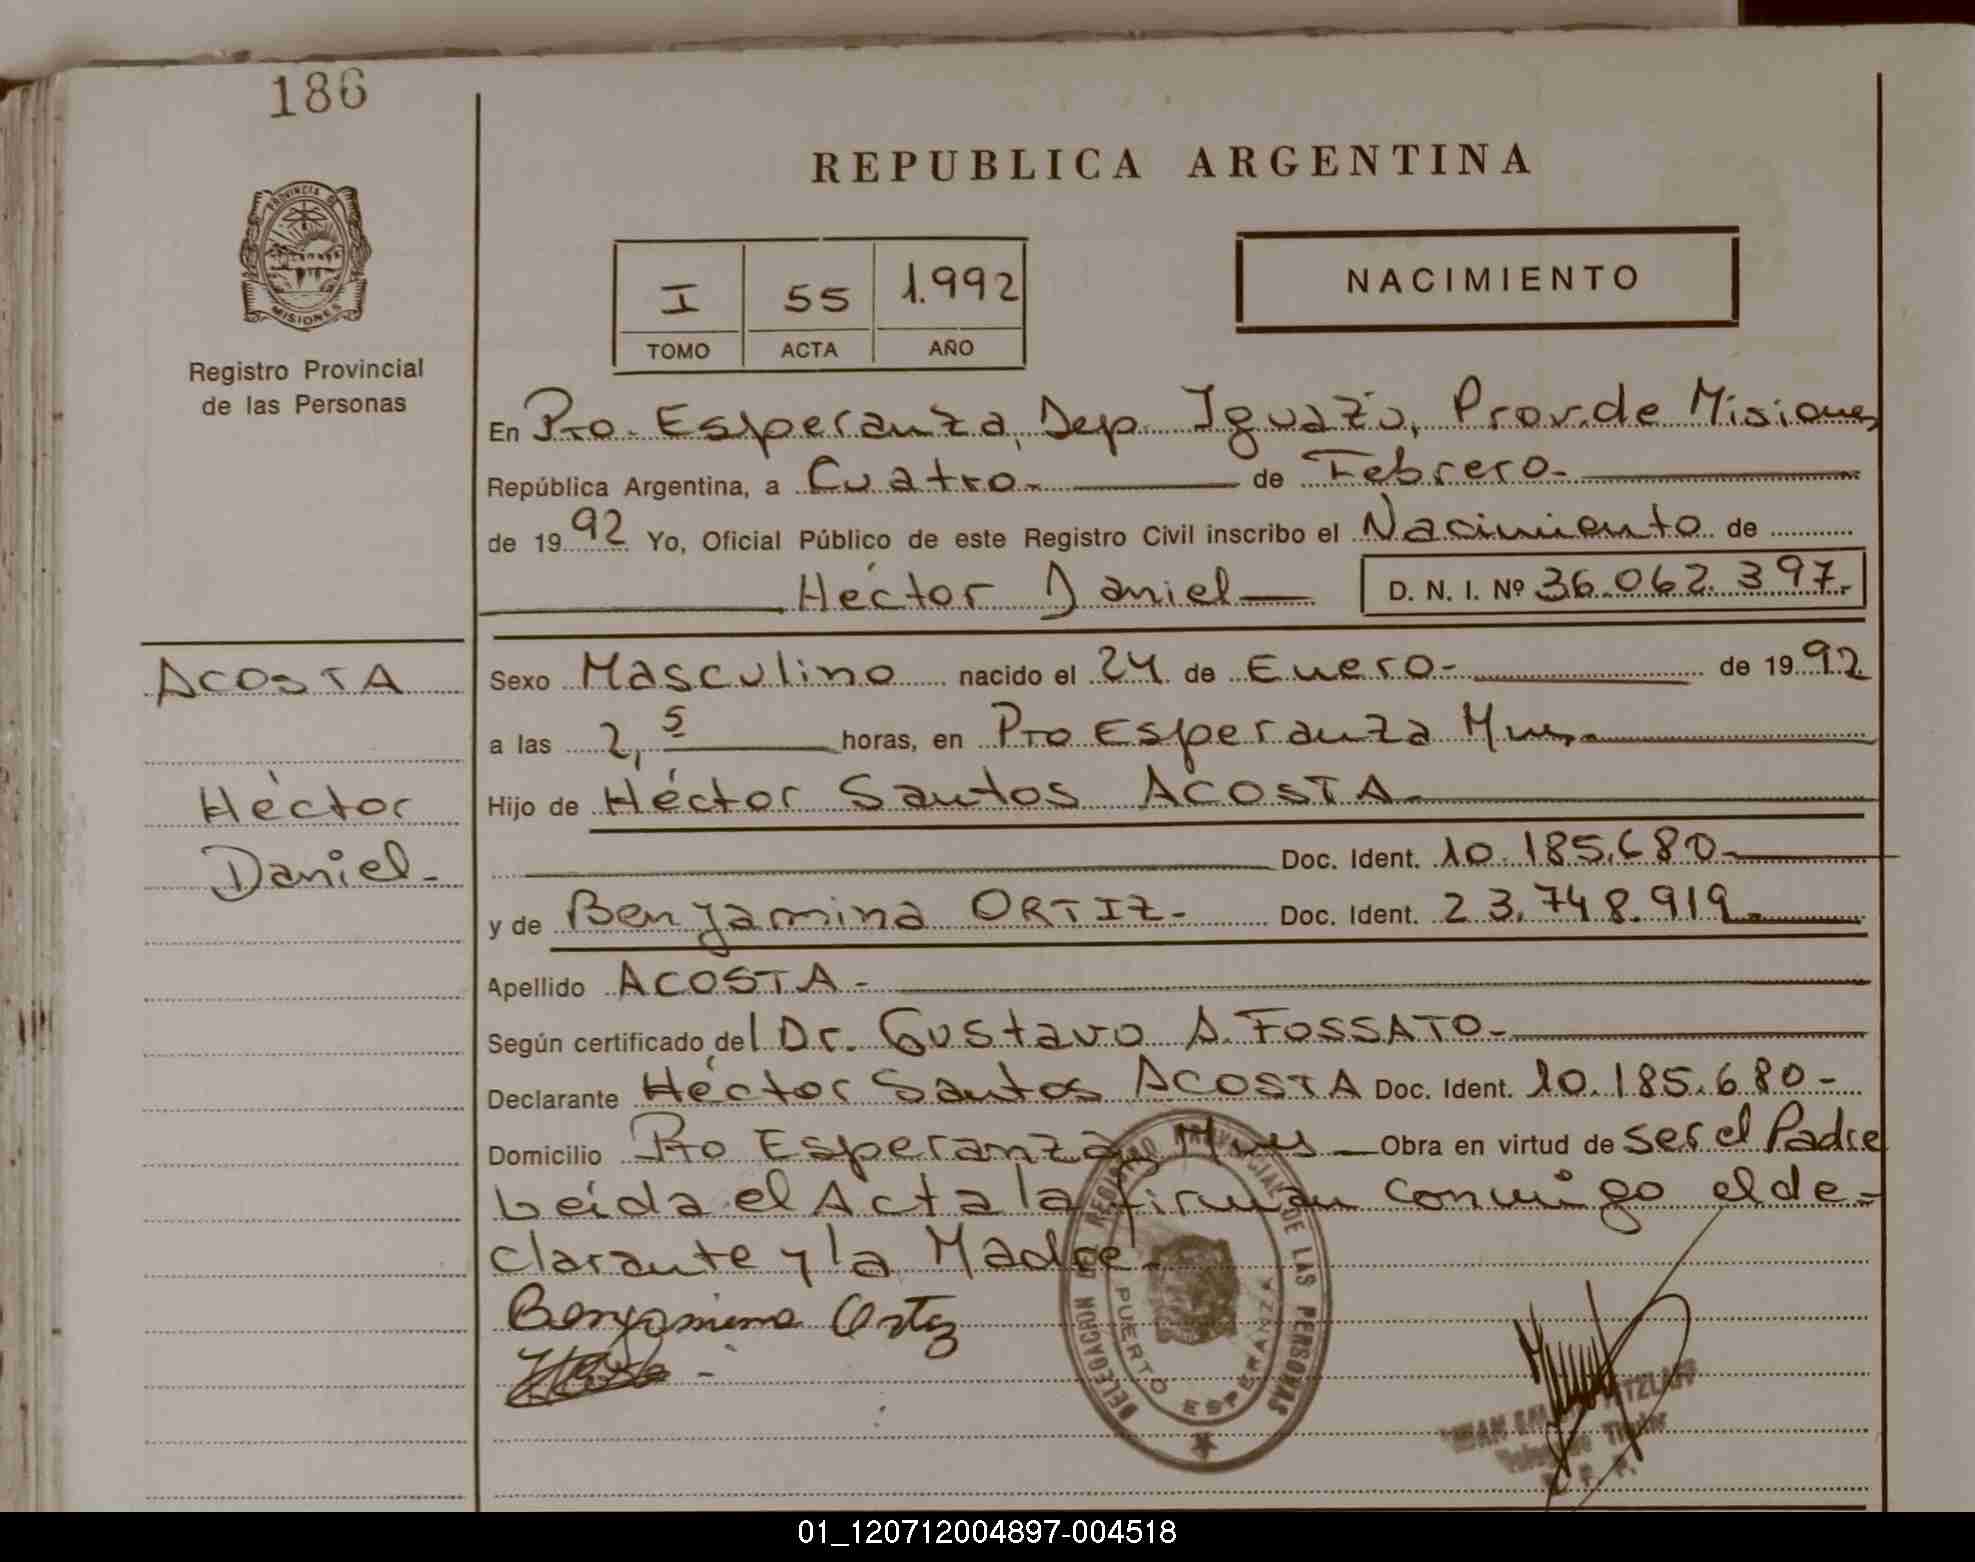 186
PROVINCIA DE
MISIONES
Registro Provincial
de las Personas
REPUBLICA ARGENTINA
I 55 1.992
TOMO ACTA AÑO
NACIMIENTO
En Pto. Esperanza, Dep. Iguazú, Prov. de Misiones
República Argentina, a Cuatro.- de Febrero.-
de 1992 Yo, Oficial Público de este Registro Civil inscribo el Nacimiento de
Héctor Daniel D. N. I. Nº 36.062.397.-
ACOSTA
Héctor
Daniel-
Sexo Masculino nacido el 24 de Enero- de 1992
a las 2,5 horas, en Pto Esperanza Mnes.
Hijo de Héctor Santos ACOSTA-
Doc. Ident. 10.185.680-
y de Benjamina ORTIZ- Doc. Ident. 23.748.919-
Apellido ACOSTA-
Según certificado del Dr. Gustavo A. FOSSATO-
Declarante Héctor Santos ACOSTA Doc. Ident. 10.185.680-
Domicilio Pto Esperanza Mnes Obra en virtud de ser el Padre
Leída el Acta la firman conmigo el de-
clarante y la Madre.-
Benjamina Ortiz
DELEGACION DEL REGISTRO PROVINCIAL DE LAS PERSONAS
PUERTO ESPERANZA
Titular
01_120712004897-004518